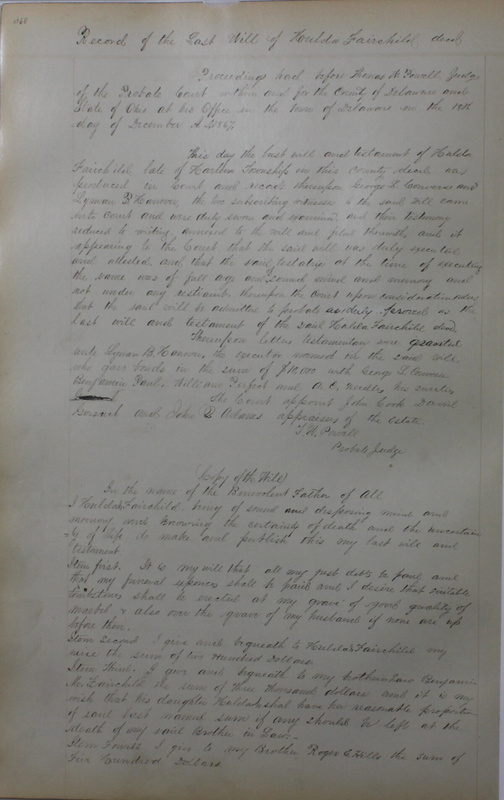 Record of the Last Will of Hulda Fairchild, decd
Proceedings had before Thomas W. Powell, Judge
of the Probate Court within and for the County of Delaware and
State of Ohio at his Office in the Town of Delaware on the 19th
day of December A.D. 1867,
This day the last will and testament of Hulda
Fairchild, late of Harlem Township in this county, decd, was
produced in Court and record thereupon George L. and
Lyman B. Hanover, the two subscribing witnesses to the said will came
into court and were duly sworn and examined, and their testimony
reduced to writing, annexed to the will and filed therewith, and it
appearing to the Court that the said will was duly executed
and attested, and that the said testatrix at the time of executing
the same was of full age and sound mind and memory and
not under any restraint, thereupon the court upon consideration orders
that the said will be admitted to probate as duly proved as the
last will and testament of the said Hulda Fairchild, decd.
Thereupon letters testamentary were granted
unto Lyman B. Hanover, the executor named in the said will,
who gave bonds in the sum of $10,000 with George L.
Benjamin Paul, William Perfect and A. C. Needles, his sureties
The Court appoint John Cook Daniel
and John D Adams appraisers of the estate
T. W. Powell
Probate Judge
(Copy of the Will)
In the name of the Benevolent Father of All
I Hulda Fairchild, being of sound and disposing mind and
memory and knowing the certainty of death and the uncertain
ty of life do make and publish this my last will and
testament.
Item first. It is my will that all my just debts be paid, and
that my funeral expences shall be paid and I desire that suitable
shall be erected at my grave of good quality of
marble & also over the grave of my husband if none are up
before then.
Item Second I give and bequeath to Hulda Fairchild my
niece the sum of two Hundred Dollars
Item Third. I give and bequeath to my brother in law Benjamin
M. Fairchild the sum of three thousand dollars and it is my
wish that his daughter Hulda shal have her reasonable proportion
of said last named sum if any should be left at the
death of my said Brother in Law.
Item Fourth I give to my Brother Roger C Hills the sum of
Five Hundred Dollars